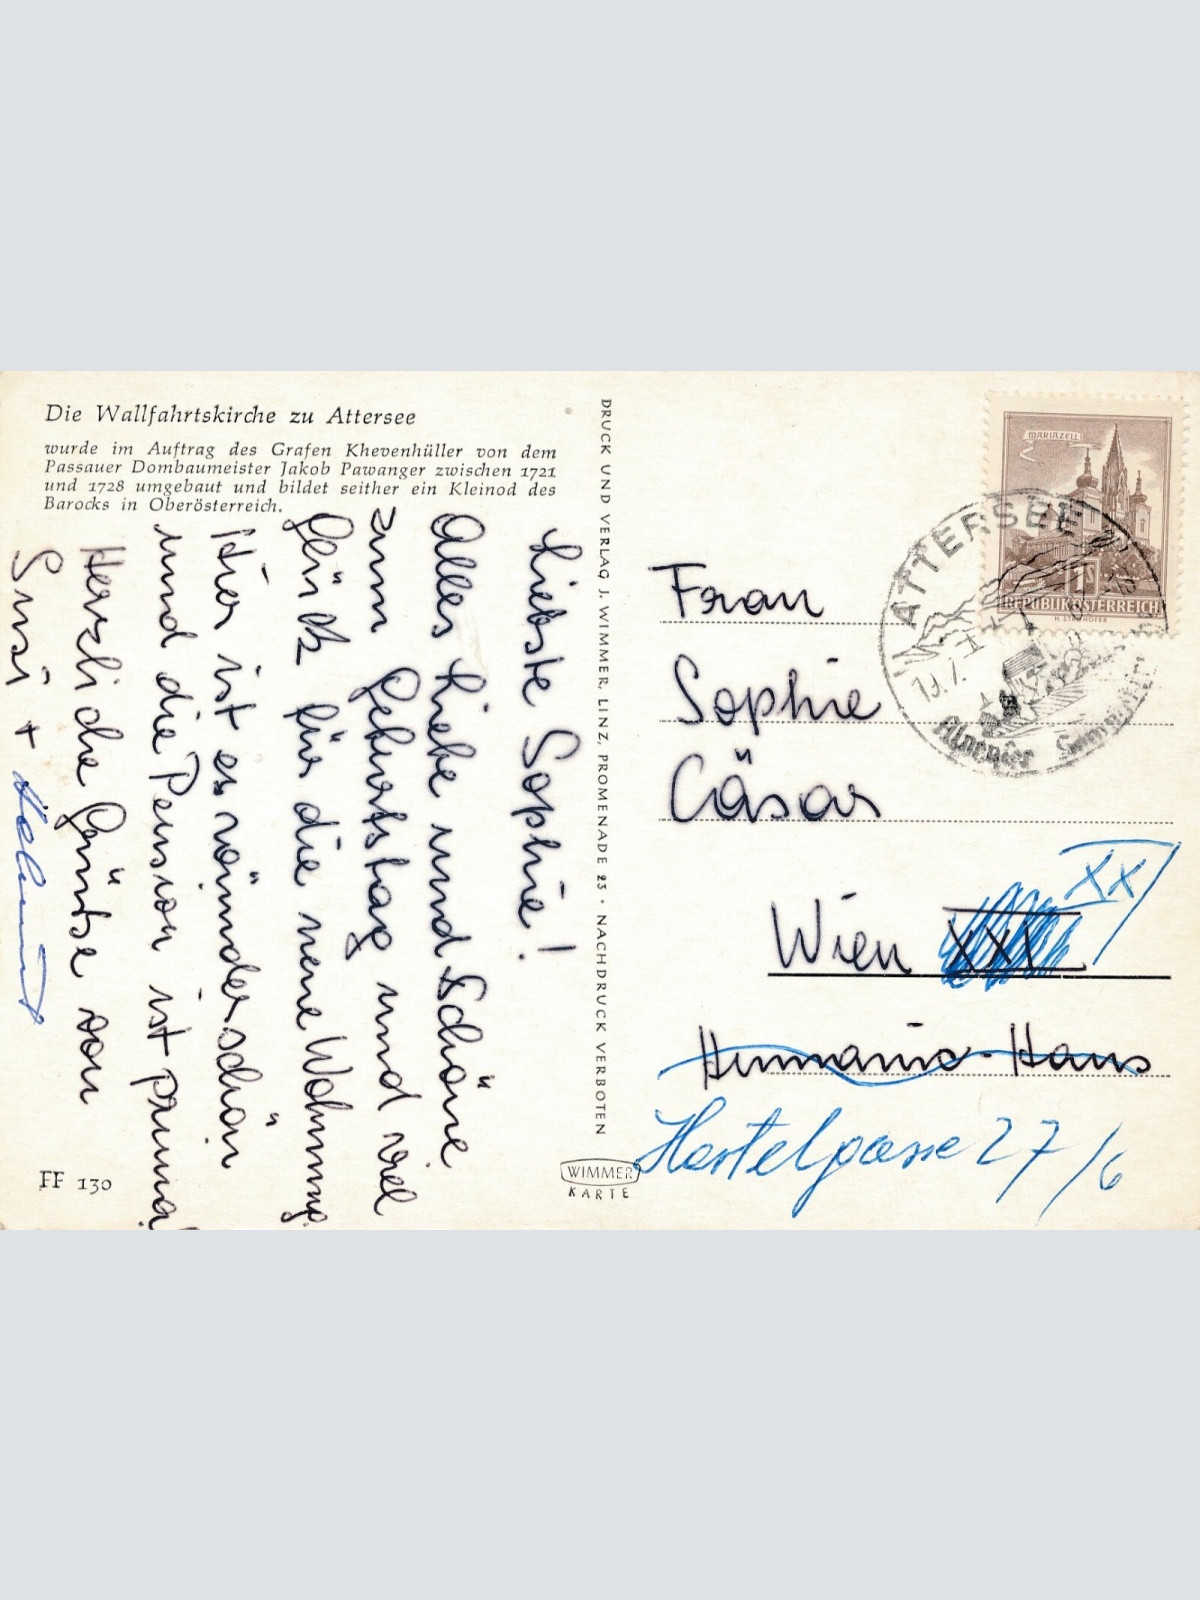 Die Wallfahrtskirche zu Attersee
wurde im Auftrag des Grafen Khevenhüller von dem
Passauer Dombaumeister Jakob Pawanger zwischen 1721
und 1728 umgebaut und bildet seither ein Kleinod des
Barocks in Oberösterreich.
Liebste Sophie!
Alles Liebe und Schöne
zum Geburtstag und viel
Glück für die neue Wohnung.
Hier ist es wunderschön
und die Pension ist prima!
Herzliche Grüße von
Susi + Helmut
FF 130
DRUCK UND VERLAG J. WIMMER, LINZ, PROMENADE 23 · NACHDRUCK VERBOTEN
WIMMER
KARTE
MARIAZELL
1 S
REPUBLIK ÖSTERREICH
ATTERSEE
Frau
Sophie
Cäsar
Wien XXI XX
Hummanic-Haus
Hartelgasse 27/6